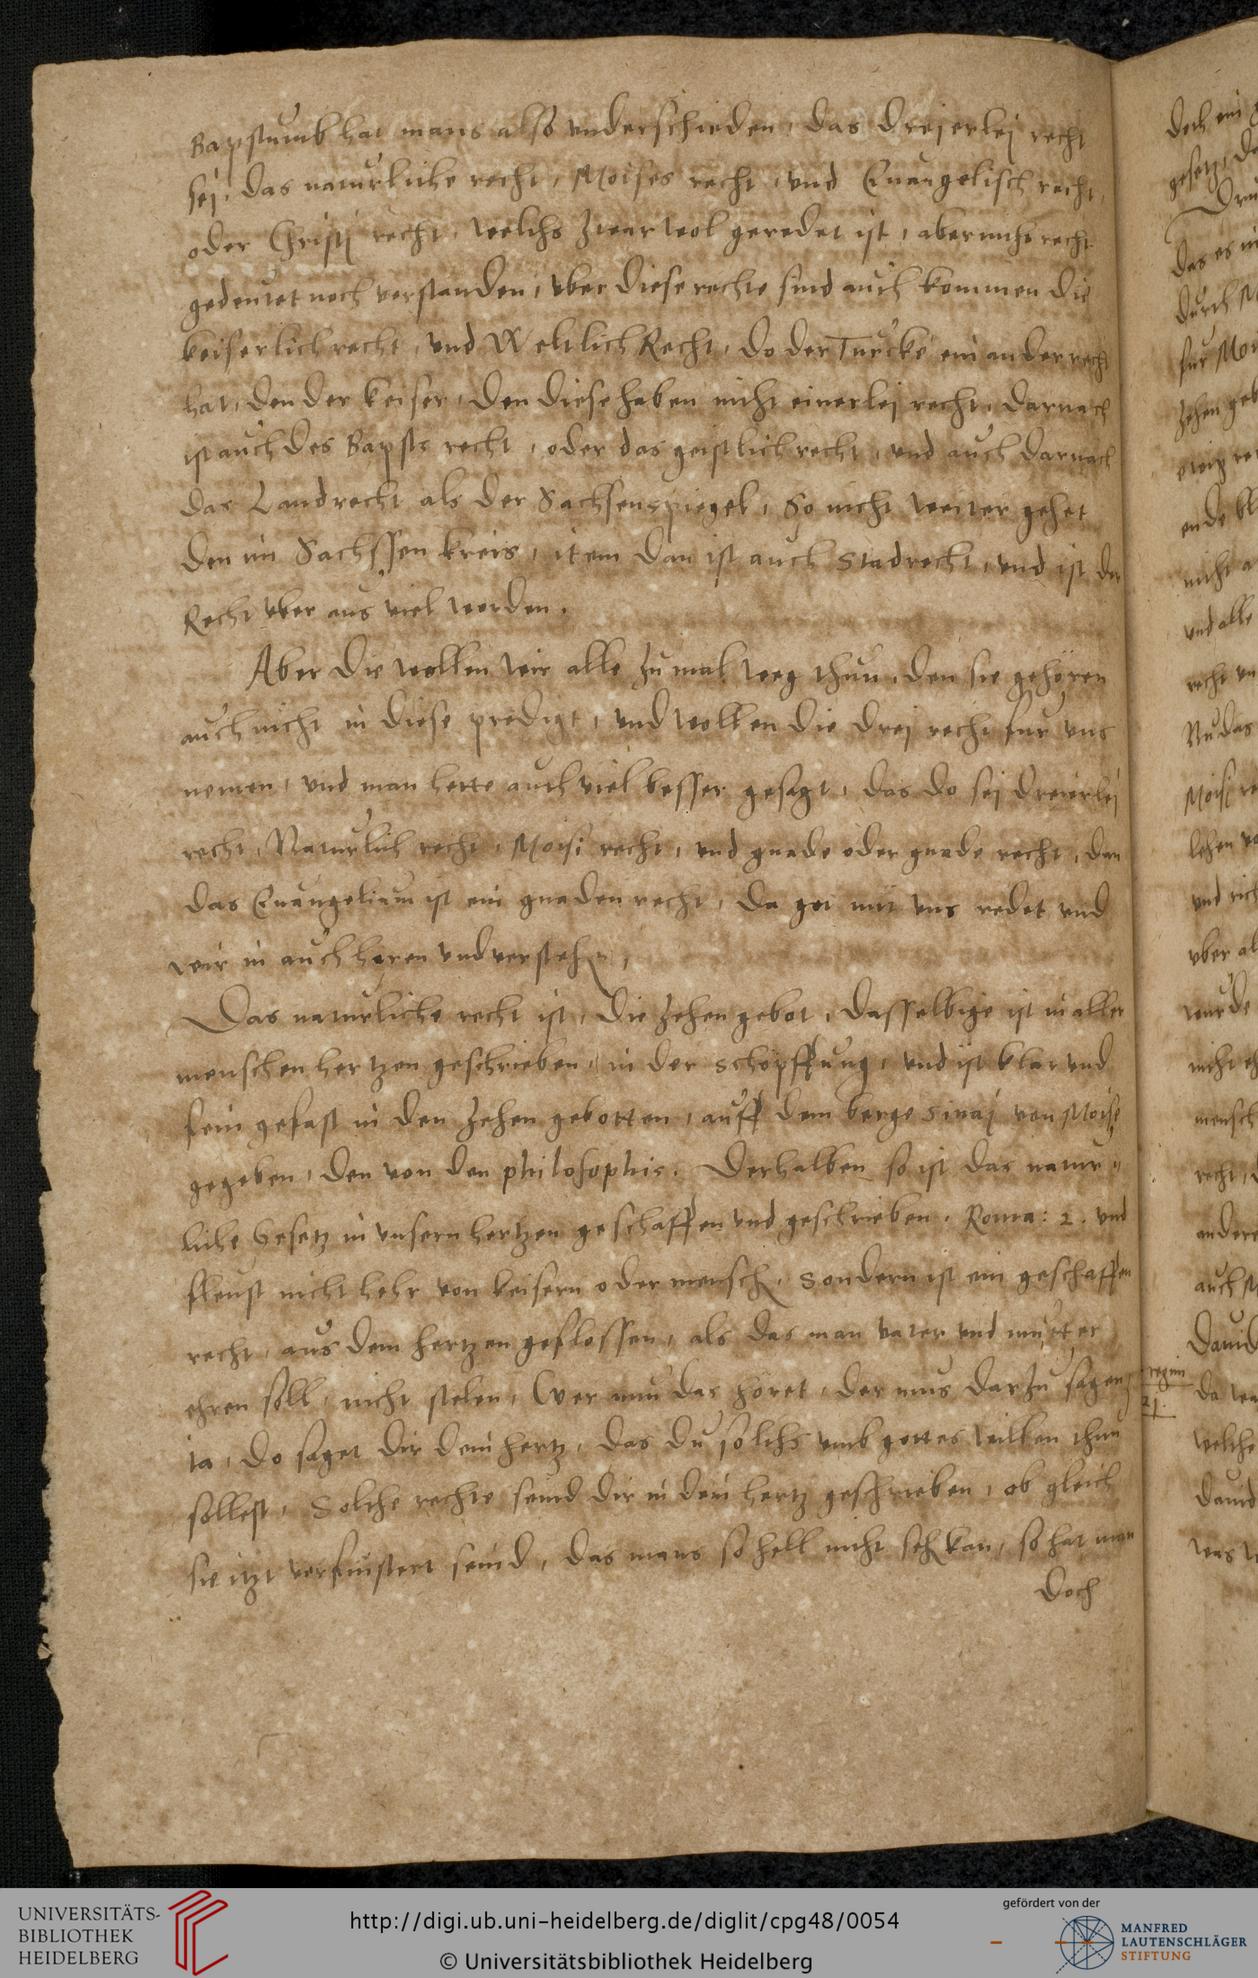 Bapstumb hat mans also underschieden, das dreierlej recht
sej, das naturliche recht, Moises recht, und Euangelisch recht,
oder Christj recht, welchs zwar wol geredet ist, aber nicht recht
gedeutet noch verstanden, uber diese rechte sind auch kommen die
keiserlich recht, und Weltlich Recht, do der Turcke ein ander recht
hat, den der keiser, den diese haben nicht einerlej recht, darnach
ist auch des Bapsts recht, oder das geistlich recht, und auch darnach
das Landrecht als der Sachsenspiegel, So nicht weiter gehet
den im Sachssen kreis, item dan ist auch Stadrecht, und ist der
Recht uber aus viel worden.
Aber die wollen wir alle zu mal weg thun, den sie gehören
auch nicht in diese predigt, und wollen die drej recht fur uns
nemen, und man hette auch viel besser gesagt, das do sej dreierlej
recht, Naturlich recht, Moisi recht, und gnade oder gnade recht, den
das Euangelium ist ein gnaden recht, da got mit uns redet und
wir in auch horen und verstehn,
Das naturliche recht ist, die zehen gebot, dasselbige ist in aller
menschen hertzen geschrieben, in der schöpffung, und ist klar und
fein gefast in den zehen gebotten, auff dem berge Sinaj von Moise
gegeben, den von den philosophis. Derhalben so ist das natur=
liche Gesetz in unsern hertzen geschaffen und geschrieben. Roma: 2. und
fleust nicht hehr von keisern oder mensch, Sondern ist ein geschaffen
recht, aus dem hertzen geflossen, als das man vater und mutter
ehren soll, nicht stelen, Wer nun das höret, der mus darzu sagen
ia, do saget dir dein hertz, das du solchs umb gottes willen thun
sollest, Solche rechte seind dir in dein hertz geschrieben, ob gleich
sie itzt verfinstert seind, das mans so hell nicht sehn kan, so hat man
doch
UNIVERSITÄTS-
BIBLIOTHEK
HEIDELBERG
http://digi.ub.uni-heidelberg.de/diglit/cpg48/0054
© Universitätsbibliothek Heidelberg
gefördert von der
MANFRED
LAUTENSCHLÄGER
STIFTUNG